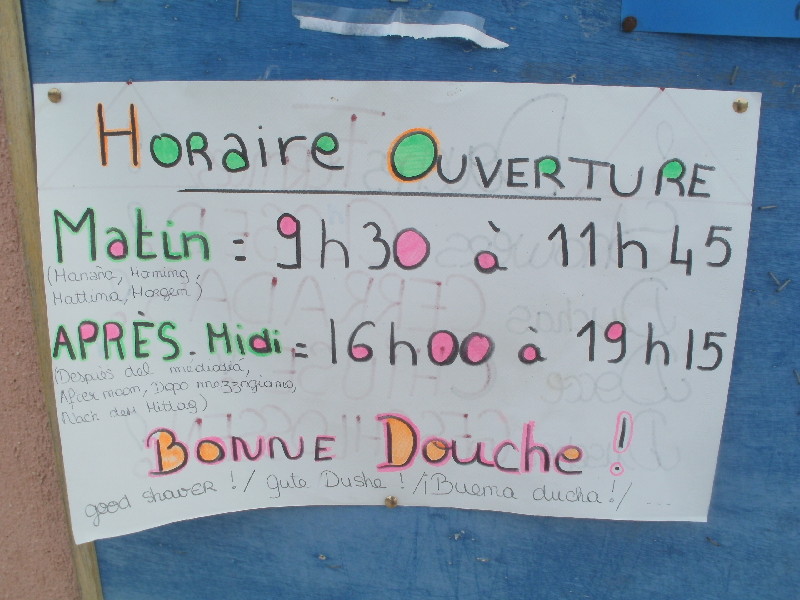 Horaire Ouverture
Matin = 9h30 à 11h45
(Manaña, Morning,
Mattina, Morgen)
APRÈS-Midi = 16h00 à 19h15
(Despuès del mediadia,
After noon, Dopo mezzogiorno,
Nach den Mittag)
Bonne Douche !
good shower !/ gute Dushe !/¡Buema ducha!/ ...